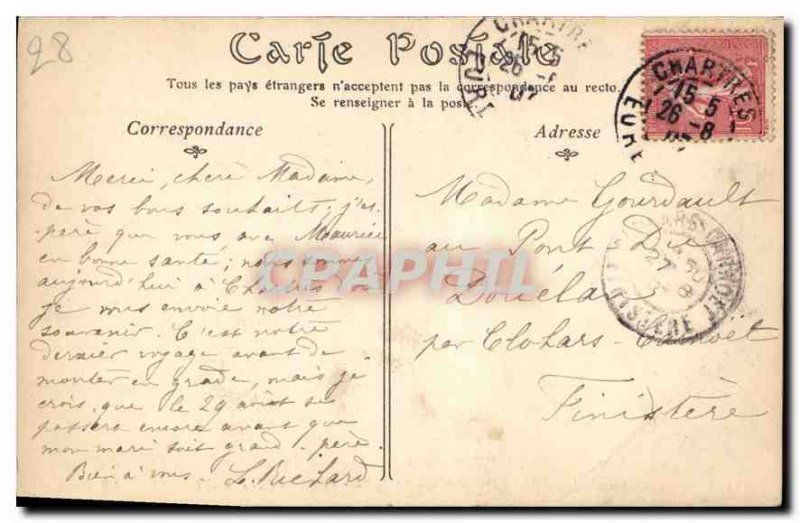 28
Carte Postale
Tous les pays étrangers n'acceptent pas la correspondance au recto.
Se renseigner à la poste.
Correspondance
Merci, chère Madame,
de vos bons souhaits; j'es-
père que vous avez Maurice
en bonne santé; nous sommes
aujourd'hui à Chartres
je vous envoie notre
souvenir. C'est notre
dernier voyage avant de
monter en grade, mais je
crois que le 29 août se
passera encore avant que
mon mari soit grand-père.
Bien à vous. L. Richard
Adresse
Madame Gourdault
au Pont Du
Douélan
par Clohars-Carnoet
Finistère
CHARTRES
15 5
26 -8
07
EURE
CHARTRES
15 5
26 -8
07
EURE
CLOHARS-CARNOET
27 8
FINISTERE
CPAPHIL